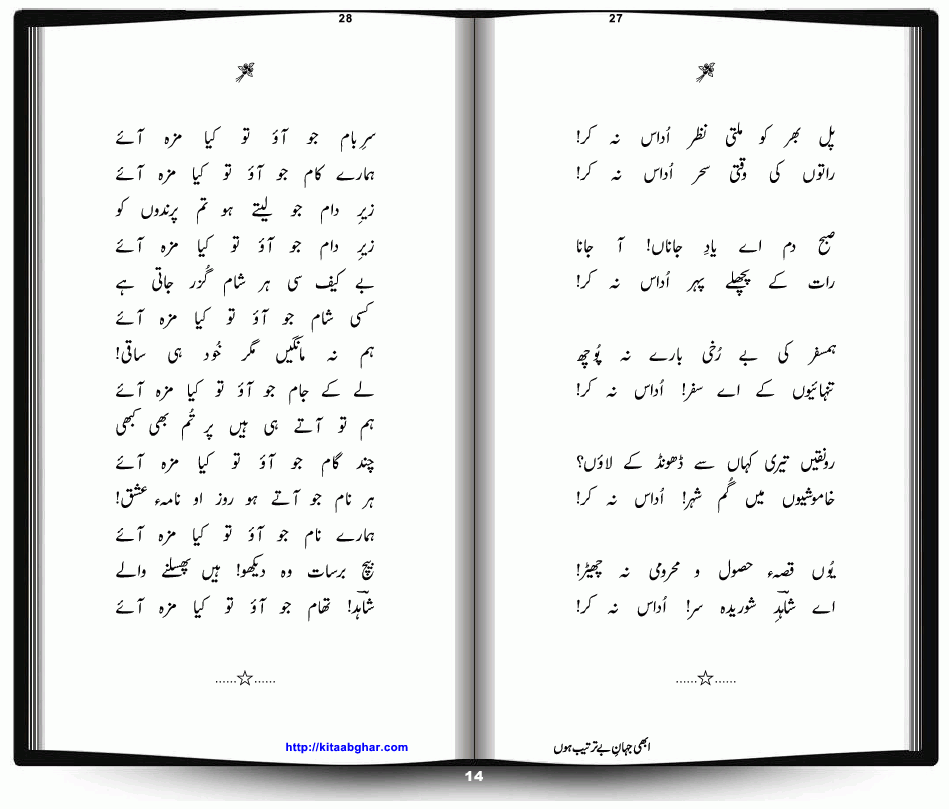 27
پل بھر کو ملتی نظر اُداس نہ کر!
راتوں کی وقتی سحر اُداس نہ کر!
صبح دم اے یادِ جاناں! آ جانا
رات کے پچھلے پہر اُداس نہ کر!
ہمسفر کی بے رُخی بارے نہ پُوچھ
تنہائیوں کے اے سفر! اُداس نہ کر!
رونقیں تیری کہاں سے ڈھونڈ کے لاؤں؟
خاموشیوں میں گُم شہر! اُداس نہ کر!
یُوں قصہء حصول و محرومی نہ چھیڑ!
اے شاہدِؔ شوریدہ سر! اُداس نہ کر!
......☆......
ابھی جہانِ بے ترتیب ہوں
28
سرِبام جو آؤ تو کیا مزہ آئے
ہمارے کام جو آؤ تو کیا مزہ آئے
زیرِ دام جو لیتے ہو تم پرندوں کو
زیرِ دام جو آؤ تو کیا مزہ آئے
بے کیف سی ہر شام گُزر جاتی ہے
کسی شام جو آؤ تو کیا مزہ آئے
ہم نہ مانگیں مگر خُود ہی ساقی!
لے کے جام جو آؤ تو کیا مزہ آئے
ہم تو آتے ہی ہیں پر تُم بھی کبھی
چند گام جو آؤ تو کیا مزہ آئے
ہر نام جو آتے ہو روز او نامہء عشق!
ہمارے نام جو آؤ تو کیا مزہ آئے
بیچ برسات وہ دیکھو! ہیں پھسلنے والے
شاہدؔ! تھام جو آؤ تو کیا مزہ آئے
......☆......
http://kitaabghar.com
14